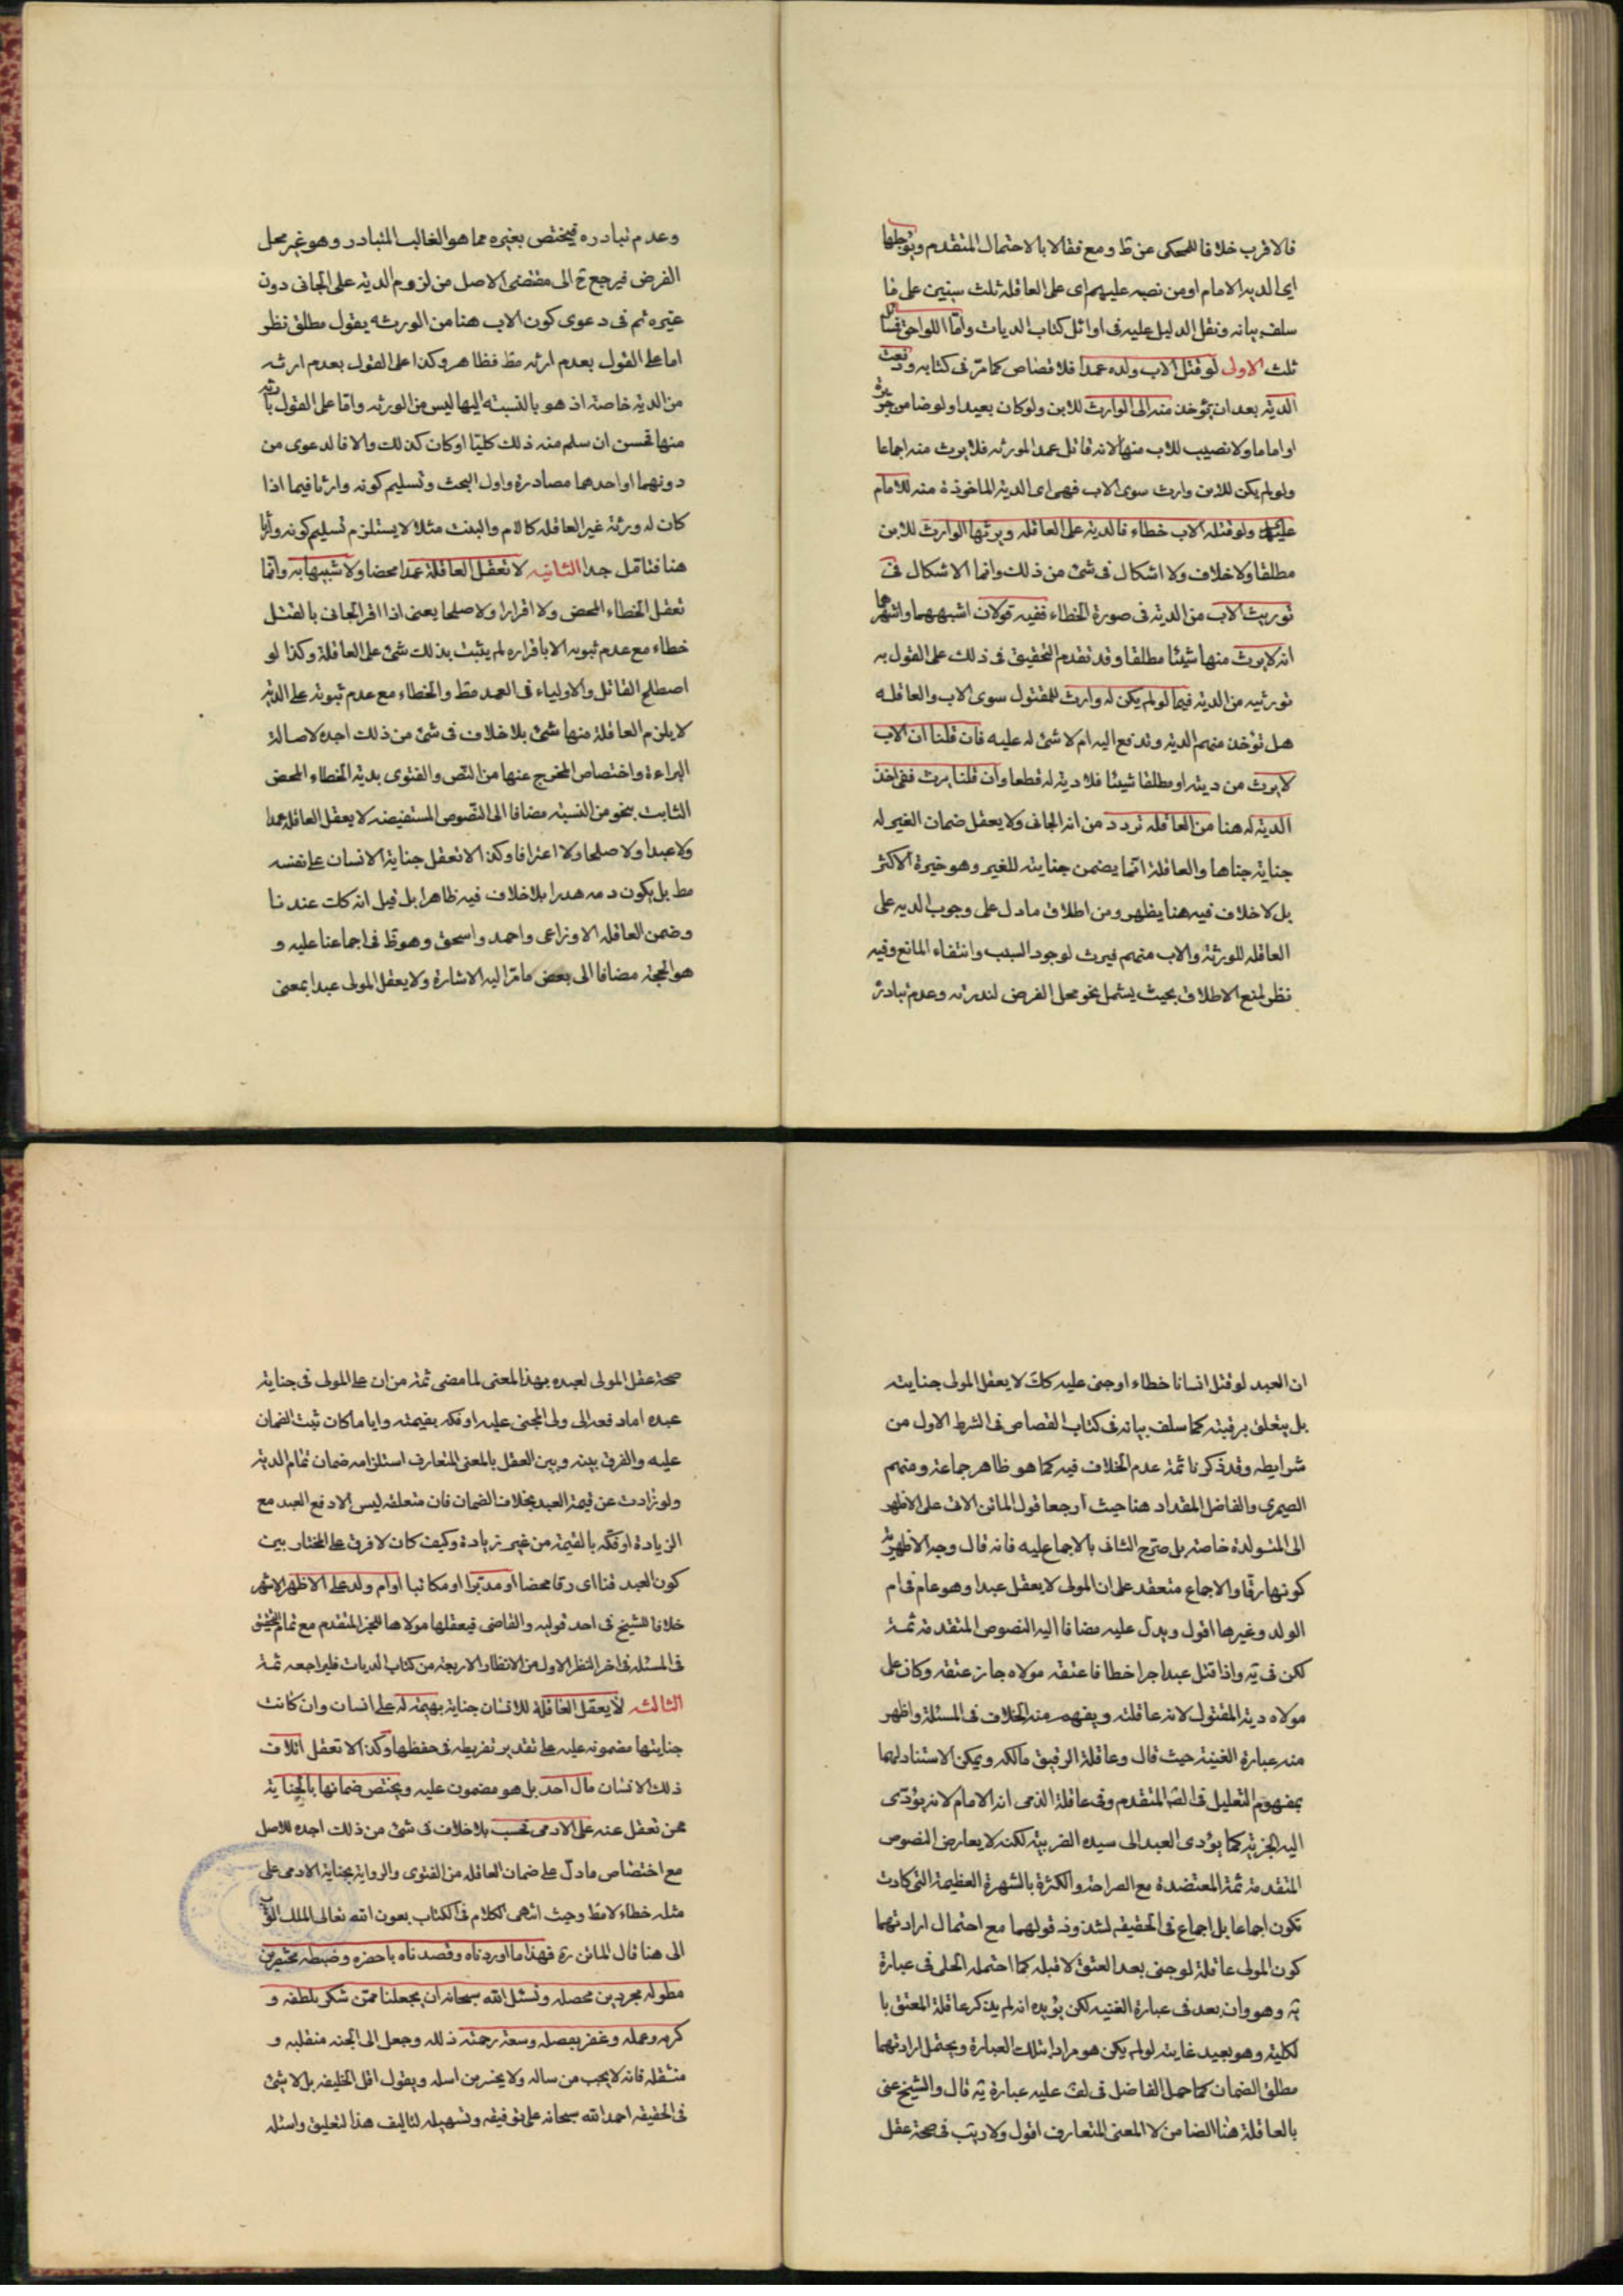 فالاقرب خلافا للمحكى عن ط ومع فقالا بالاحتمال المتقدم ويؤجلها
اى الدية الامام او من نصبه عليهم اى على العاقلة ثلث سنين على ما
سلف بيانه ونقل الدليل عليه فى اوائل كتاب الديات واما اللواحق فمسائل
ثلث الاولى لو قتل الاب ولده عمدا فلا قصاص كما مر فى كتابه ودفعت
الدية بعد ان تؤخذ منه الى الوارث للابن ولو كان بعيدا ولو ضامن جريرة
او اماما ولا نصيب للاب منها لانه قاتل عمدا لمورثه فلا يرث منه اجماعا
ولو لم يكن للابن وارث سوى الاب فهى اى الدية الماخوذة منه للامام
ولو قتله الاب خطاء فالدية على العاقلة ويرثها الوارث للابن
مطلقا ولا خلاف ولا اشكال فى شئ من ذلك وانما الاشكال فى
توريث الاب من الدية فى صورة الخطاء ففيه قولان اشبههما واشهرهما
انه لا يرث منها شيئا مطلقا وقد تقدم التحقيق فى ذلك على القول به
توريثه من الدية فيما لو لم يكن له وارث للمقتول سوى الاب والعاقلة
هل تؤخذ منهم الدية وتدفع اليه ام لا شئ له عليه فان قلنا ان الاب
لا يرث من ديته او مطلقا شيئا فلا دية له قطعا وان قلنا يرث ففى اخذ
الدية له هنا من العاقله تردد من انه الجانى ولا يعقل ضمان الغير له
جناية جناها والعاقلة انما يضمن جنايته للغير وهو خيرة الاكثر
بل لا خلاف فيه هنا يظهر ومن اطلاق ما دل على وجوب الدية على
العاقله للورثة والاب منهم فيرث لوجود السبب وانتفاء المانع وفيه
نظر لمنع الاطلاق بحيث يشمل نحو محل الفرض لندرته وعدم تبادر
وعدم تبادره فيختص بغيره مما هو الغالب المتبادر وهو غير محل
الفرض فيرجع ح الى مقتضى الاصل من لزوم الدية على الجانى دون
غيره ثم فى دعوى كون الاب هنا من الورثه بقول مطلق نظر
اما على القول بعدم ارثه مط فظاهر وكذا على القول بعدم ارثه
من الدية خاصة اذ هو بالنسبة اليها ليس من الورثه واما على القول بارثه
منها تحسن ان سلم منه ذلك كليا او كان كذلك والا فالدعوى من
دونهما او احدهما مصادرة واول البحث وتسليم كونه وارثا فيما اذا
كان له ورثة غير العاقله كالام والبنت مثلا لا يستلزم تسليم كونه وارثا
هنا فتامل جدا الثانيه لا تعقل العاقلة عمدا محضا ولا شبيها به وانما
تعقل الخطاء المحض ولا اقرارا ولا صلحا يعنى اذا اقر الجانى بالقتل
خطاء مع عدم ثبوته الا باقراره لم يثبت بذلك شئ على العاقلة وكذا لو
اصطلح القاتل والاولياء فى العمد مط والخطاء مع عدم ثبوته على الدية
لا يلزم العاقلة منها شئ بلا خلاف فى شئ من ذلك اجده لاصالة
البراءة واختصاص المخرج عنها من النص والفتوى بدية الخطاء المحض
الثابت بنحو من النسبة مضافا الى النصوص المستفيضه لا يعقل العاقلة عمدا
ولا عبدا ولا صلحا ولا اعترافا وكذا لا تعقل جناية الانسان على نفسه
مط بل يكون دمه هدرا بلا خلاف فيه ظاهرا بل قيل انه كلت عندنا
وضمن العاقله الاوزاعى واحمد واسحق وهو ظ فى اجماعنا عليه و
هو الحجة مضافا الى بعض ما مر اليه الاشارة ولا يعقل المولى عبدا بمعنى
ان العبد لو قتل انسانا خطاء او جنى عليه كك لا يعقل المولى جنايته
بل يتعلق برقبته كما سلف بيانه فى كتاب القصاص فى الشرط الاول من
شرايطه وقد ذكرنا ثمة عدم الخلاف فيه كما هو ظاهر جماعة ومنهم
الصيمرى والفاضل المقداد هنا حيث ارجعا قول الماتن الات على الاظهر
الى المتولدة خاصة بل صرح الثانى بالاجماع عليه فانه قال وجه الاظهرية
كونها رقا والاجماع منعقد على ان المولى لا يعقل عبدا وهو عام فى ام
الولد وغيرها اقول ويدل عليه مضافا اليه النصوص المتقدمة ثمة
لكن فى ية واذا قتل عبدا حرا خطا فاعتقه مولاه جاز عتقه وكان على
مولاه دية المقتول لانه عاقلته ويفهم منه الخلاف فى المسئلة واظهر
منه عبارة الغنية حيث قال وعاقلة الرقيق مالكه ويمكن الاستناد لهما
بمفهوم التعليل فى الصه المتقدم وفى عاقلة الذمى انه الامام لانه يؤدى
اليه الجزية كما يؤدى العبد الى سيده الضريبة لكنه لا يعارض النصوص
المتقدمة ثمة المعتضدة مع الصراحة والكثرة بالشهرة العظيمة التى كادت
تكون اجماعا بل اجماع فى الحقيقه لشذوذ قولهما مع احتمال ارادتهما
كون المولى عاقلة لو جنى بعد العتق لا قبله كما احتمله الحلى فى عبارة
ية وهو وان بعد فى عبارة الغنية لكن يؤيده انه لم يذكر عاقلة المعتق با
لكلية وهو بعيد غايته لو لم يكن هو مرادا بتلك العبارة ويحتمل ارادتهما
مطلق الضمان كما حمل الفاضل فى لف عليه عبارة ية قال والشيخ عنى
بالعاقلة هنا الضامن لا المعنى المتعارف اقول ولا ريب فى صحة عقل
صحة عقل المولى لعبده بهذا المعنى لما مضى ثمة من ان على المولى فى جناية
عبده اما دفعه الى ولى المجنى عليه او فكه بقيمته وايا ما كان ثبت الضمان
عليه والفرق بينه وبين العقل بالمعنى المتعارف استلزامه ضمان تمام الدية
ولو زادت عن قيمة العبد بخلاف الضمان فان متعلقه ليس الا دفع العبد مع
الزيادة او فكه بالقيمة من غير زيادة وكيف كان لا فرق على المختار بين
كون العبد قنا اى رقا محضا او مدبرا او مكاتبا او ام ولد على الاظهر الاشهر
خلافا للشيخ فى احد قوليه والقاضى فيعقلها مولاها للخبر المتقدم مع تمام التحقيق
فى المسئلة فى اخر النظر الاول من الانظار الاربعة من كتاب الديات فليراجعه ثمة
الثالثه لا يعقل العاقلة للانسان جناية بهيمة له على انسان وان كانت
جنايتها مضمونه عليه على تقدير تفريطه فى حفظها وكذا لا تعقل اتلاف
ذلك الانسان مال احد بل هو مضمون عليه ويختص ضمانها بالجناية
ممن تعقل عنه على الادمى تحسب بلا خلاف فى شئ من ذلك اجده للاصل
مع اختصاص ما دل على ضمان العاقله من الفتوى والرواية بجناية الادمى على
مثله خطاء لا مط وحيث انتهى الكلام فى الكتاب بعون الله تعالى الملك
الى هنا قال الماتن ره فهذا ما اوردناه وقصدناه باحضره وضبطه مختصرين
مطوله مجردين محصله ونسئل الله سبحانه ان يجعلنا ممن شكر بلطفه و
كرمه وعمله وغفر بفضله وسعة رحمته ذلله وجعل الى الجنه منقلبه و
منتقله فانه لا يخيب من ساله ولا يخسر من امله ويقول اقل الخليفه بل لا شئ
فى الحقيقه احمد الله سبحانه على توفيقه وتسهيله لتاليف هذا لتعليق واسئله